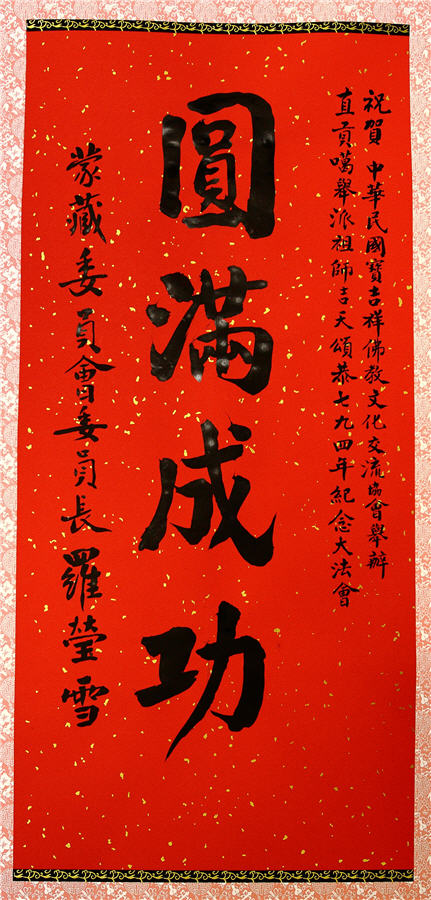 祝賀 中華民國寶吉祥佛教文化交流協會舉辦
直貢噶舉派祖師吉天頌恭七九四年紀念大法會
圓滿成功
蒙藏委員會委員長 羅瑩雪